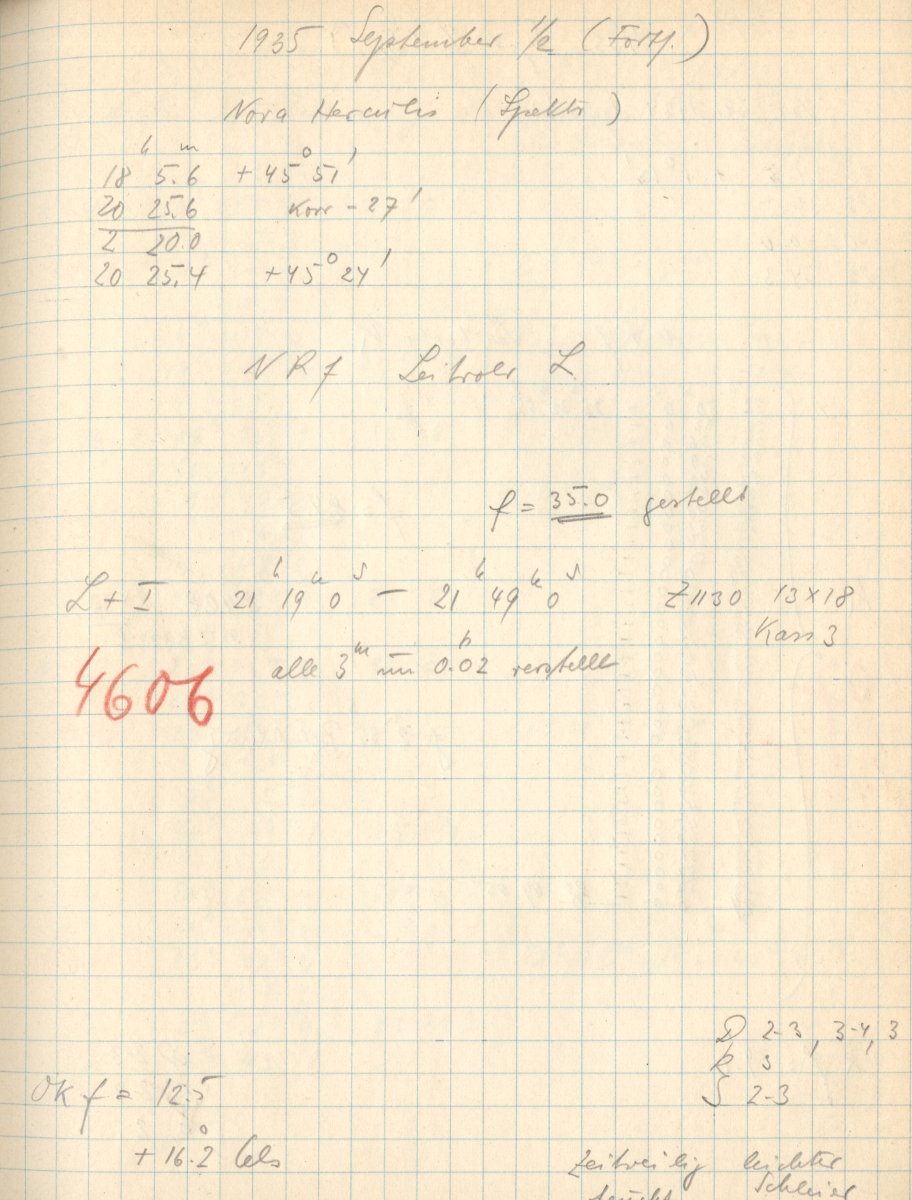 1935 September 1/2 (Fortf.)
Nova Herculis (Spektr)
18h 5.6m +45° 51'
20 25.6 Korr -27'
2 20.0
20 25.4 +45° 24'
NRf Leitrohr L
f = 35.0 gestellt
L + I 21h 19m 0s — 21h 49m 0s Z1130 13×18
Kass 3
4606 alle 3m um 0.02 verstellt
D 2-3, 3-4, 3
R 3
S 2-3
OK f = 12.5
+ 16.2° Cels
Zeitweilig leichter
Schleier
feucht